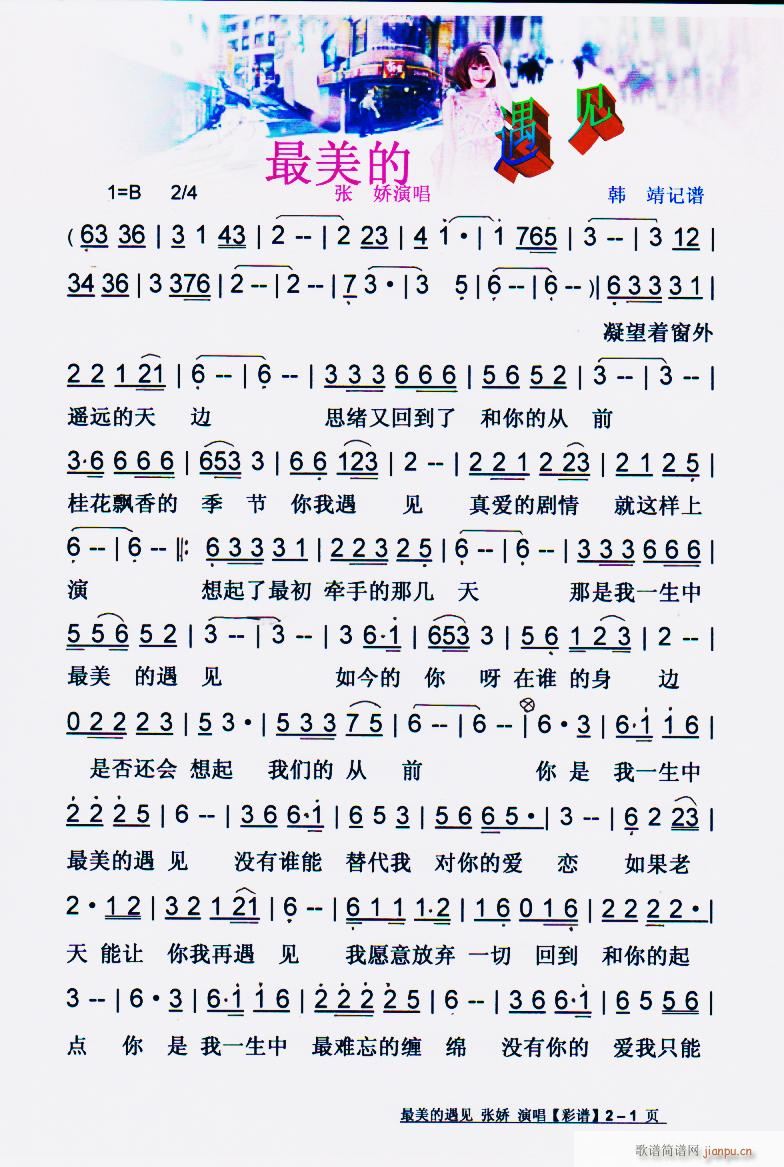 最美的遇见
1=B 2/4 张 娇演唱 韩 靖记谱
( 63 36 | 3 1 43 | 2 -- | 2 23 | 4 1 • | 1 765 | 3 -- | 3 12 |
34 36 | 3 376 | 2 -- | 2 -- | 7 3 • | 3 5 | 6 -- | 6 -- )| 6 3 3 3 1 |
凝望着窗外
2 2 1 21 | 6 -- | 6 -- | 3 3 3 6 6 6 | 5 6 5 2 | 3 -- | 3 -- |
遥远的天 边 思绪又回到了 和你的从 前
3·6 6 6 6 | 653 3 | 6 6 123 | 2 -- | 2 2 1 2 23 | 2 1 2 5 |
桂花飘香的 季 节 你我遇 见 真爱的剧情 就这样上
6 -- | 6 -- ‖: 6 3 3 3 1 | 2 2 3 2 5 | 6 -- | 6 -- | 3 3 3 6 6 6 |
演 想起了最初 牵手的那几 天 那是我一生中
5 5 6 5 2 | 3 -- | 3 -- | 3 6·1 | 653 3 | 5 6 1 2 3 | 2 -- |
最美 的遇 见 如今的 你 呀 在谁 的身 边
0 2 2 2 3 | 5 3 • | 5 3 3 7 5 | 6 -- | 6 -- | 6 • 3 | 6·1 1 6 |
是否还会 想起 我们的 从 前 你 是 我一生中
2 2 2 5 | 6 -- | 3 6 6·1 | 6 5 3 | 5 6 6 5 • | 3 -- | 6 2 23 |
最美的遇 见 没有谁能 替代我 对你的爱 恋 如果老
2 • 1 2 | 3 2 1 21 | 6 -- | 6 1 1 1·2 | 1 6 0 1 6 | 2 2 2 2 2 • |
天 能让 你我再遇 见 我愿意放弃 一切 回到 和你的起
3 -- | 6 • 3 | 6·1 1 6 | 2 2 2 2 5 | 6 -- | 3 6 6·1 | 6 5 5 6 |
点 你 是 我一生中 最难忘的缠 绵 没有你的 爱我只能
最美的遇见 张娇 演唱【彩谱】2－1 页
歌谱简谱网 jianpu.cn